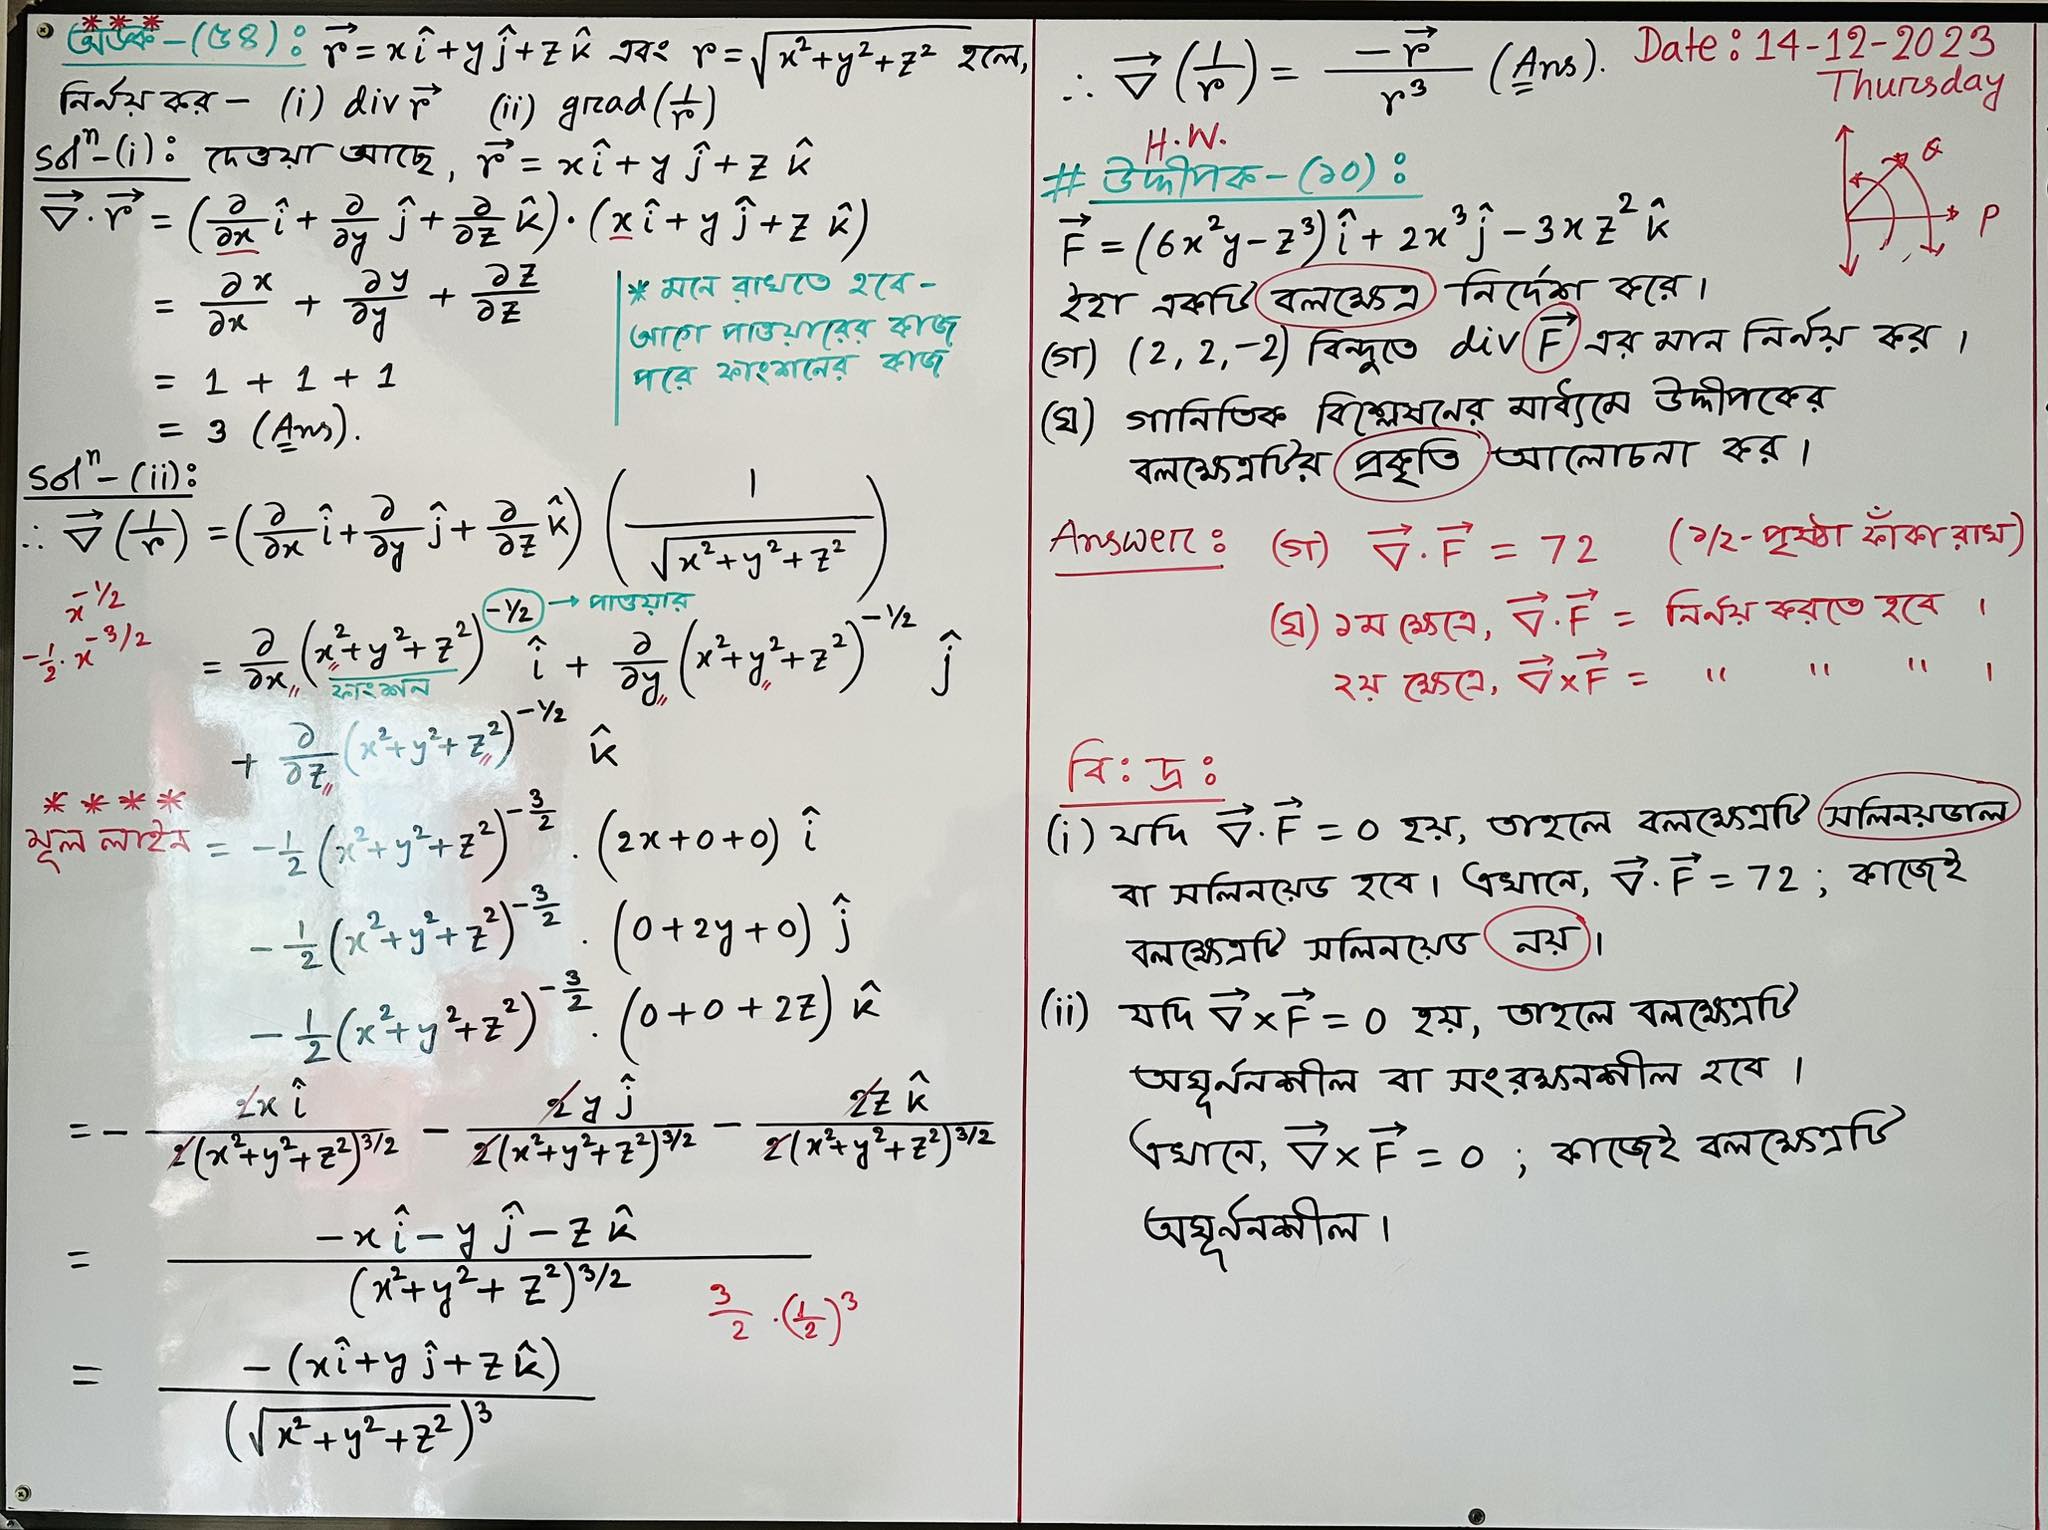 * * *
অংক-(৫৪): r⃗ = xî + yĵ + zk̂ এবং r = √(x²+y²+z²) হলে,
নির্নয় কর- (i) div r⃗ (ii) grad(1/r)
Solⁿ-(i): দেওয়া আছে, r⃗ = xî + yĵ + zk̂
∇⃗·r⃗ = (∂/∂x î + ∂/∂y ĵ + ∂/∂z k̂)·(xî + yĵ + zk̂)
= ∂x/∂x + ∂y/∂y + ∂z/∂z
= 1 + 1 + 1
= 3 (Ans).
* মনে রাখতে হবে-
আগে পাওয়ারের কাজ
পরে ফাংশনের কাজ
Solⁿ-(ii):
∴ ∇⃗(1/r) = (∂/∂x î + ∂/∂y ĵ + ∂/∂z k̂) (1/√(x²+y²+z²))
x^(-1/2)
-1/2 · x^(-3/2)
= ∂/∂x (x²+y²+z²)^(-1/2) î + ∂/∂y (x²+y²+z²)^(-1/2) ĵ
→ পাওয়ার
ফাংশন
+ ∂/∂z (x²+y²+z²)^(-1/2) k̂
* * * *
মূল লাইন = -1/2 (x²+y²+z²)^(-3/2) · (2x+0+0) î
- 1/2 (x²+y²+z²)^(-3/2) · (0+2y+0) ĵ
- 1/2 (x²+y²+z²)^(-3/2) · (0+0+2z) k̂
= - 2xî/2(x²+y²+z²)^(3/2) - 2yĵ/2(x²+y²+z²)^(3/2) - 2zk̂/2(x²+y²+z²)^(3/2)
= (-xî - yĵ - zk̂)/(x²+y²+z²)^(3/2)
3/2 · (1/2)³
= -(xî + yĵ + zk̂)/(√(x²+y²+z²))³
∴ ∇⃗(1/r) = -r⃗/r³ (Ans).
Date: 14-12-2023
Thursday
Q
P
H.W.
# উদ্দীপক-(১০):
F⃗ = (6x²y - z³)î + 2x³ĵ - 3xz²k̂
ইহা একটি বলক্ষেত্র নির্দেশ করে।
(গ) (2, 2, -2) বিন্দুতে div F⃗ এর মান নির্নয় কর।
(ঘ) গানিতিক বিশ্লেষনের মাধ্যমে উদ্দীপকের
বলক্ষেত্রটির প্রকৃতি আলোচনা কর।
Answer: (গ) ∇⃗·F⃗ = 72 (১/২-পৃষ্ঠা ফাঁকা রাখ)
(ঘ) ১ম ক্ষেত্রে, ∇⃗·F⃗ = নির্নয় করতে হবে।
২য় ক্ষেত্রে, ∇⃗×F⃗ = " " " ।
বি: দ্র:
(i) যদি ∇⃗·F⃗ = 0 হয়, তাহলে বলক্ষেত্রটি সলিনয়ডাল
বা সলিনয়েড হবে। এখানে, ∇⃗·F⃗ = 72; কাজেই
বলক্ষেত্রটি সলিনয়েড নয়।
(ii) যদি ∇⃗×F⃗ = 0 হয়, তাহলে বলক্ষেত্রটি
অঘূর্ননশীল বা সংরক্ষনশীল হবে।
এখানে, ∇⃗×F⃗ = 0; কাজেই বলক্ষেত্রটি
অঘূর্ননশীল।